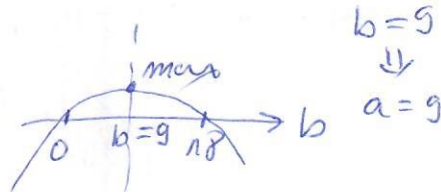 max
b
0
b=9
18
b=9
⇓
a=9